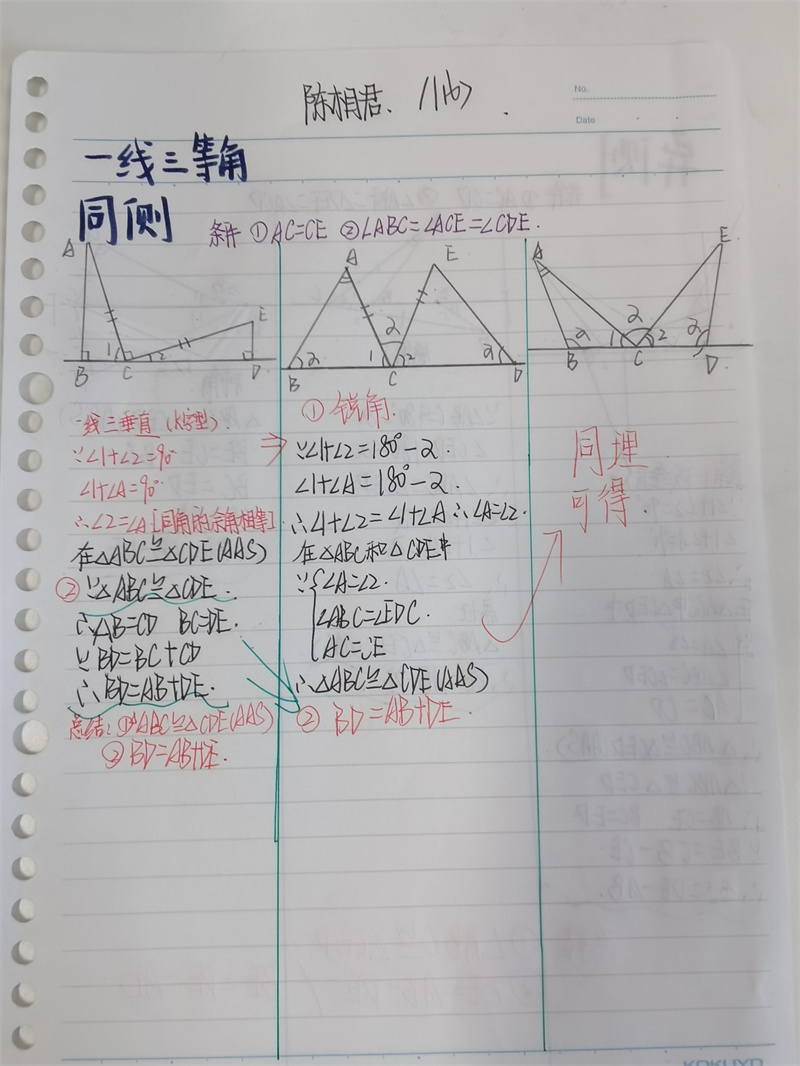 陈相君.
No.
Date
一线三等角
同侧
条件 ①AC=CE ②∠ABC=∠ACE=∠CDE.
A
B
C
D
E
1
2
A
E
B
C
D
α
1
α
2
α
A
E
B
C
D
α
1
α
2
α
一线三垂直(K字型)
∵∠1+∠2=90°
∠1+∠A=90°
∴∠2=∠A[同角的余角相等]
在△ABC≌△CDE(AAS)
②∵△ABC≌△CDE.
∴AB=CD BC=DE.
∵BD=BC+CD
∴BD=AB+DE.
总结:①△ABC≌△CDE(AAS)
②BD=AB+DE.
①锐角.
∵∠1+∠2=180°-α.
∠1+∠A=180°-α.
∴∠1+∠2=∠1+∠A ∴∠A=∠2.
在△ABC和△CDE中
∵{∠A=∠2.
∠ABC=∠EDC.
AC=CE
∴△ABC≌△CDE(AAS)
② BD=AB+DE.
同理
可得.
KOKUYO